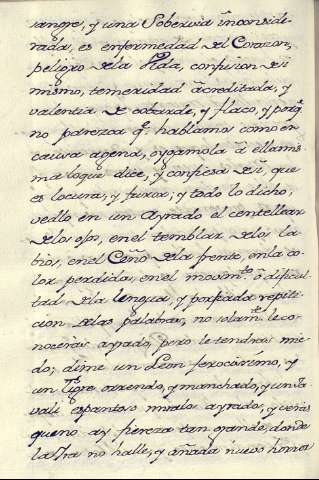 sangre, y una Soberuia inconside
rada, es enfermedad del Corazon,
peligro dela Vida, confusion desi
mismo, temeridad acreditada, y
valentia de cobarde, y flaco, y porq.
no parezca q. hablamos como en
causa agena, oygamola à ella mis
ma loque dice, y confiesa desi, que
es locura, y furor; y todo lo dicho,
vedlo en un Ayrado el centellear
delos ojos, en el temblar delos la
bios, en el Ceño dela frente, en la co
lor perdida, en el movim.to ò dificul
tad dela lengua, y porfiada repeti
cion delas palabras, no solam.te le co
noceras ayrado, pero le tendras mie
do; dime un Leon ferocissimo, y
un Tigre orrendo, y manchado, y un Ja
vali espantoso miralo ayrado, y veras
queno ay fiereza tan grande, donde
la Ira no halle, y añada nuevo horror